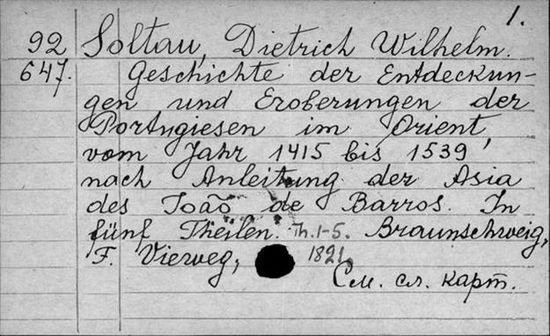 1.
92 Soltau, Dietrich Wilhelm.
647. Geschichte der Entdeckun-
gen und Eroberungen der
Portugiesen im Orient,
vom Jahr 1415 bis 1539,
nach Anleitung der Asia
des João de Barros. In
fünf Theilen. Th. 1-5. Braunschweig,
F. Vierweg, 1821.
См. сл. карт.